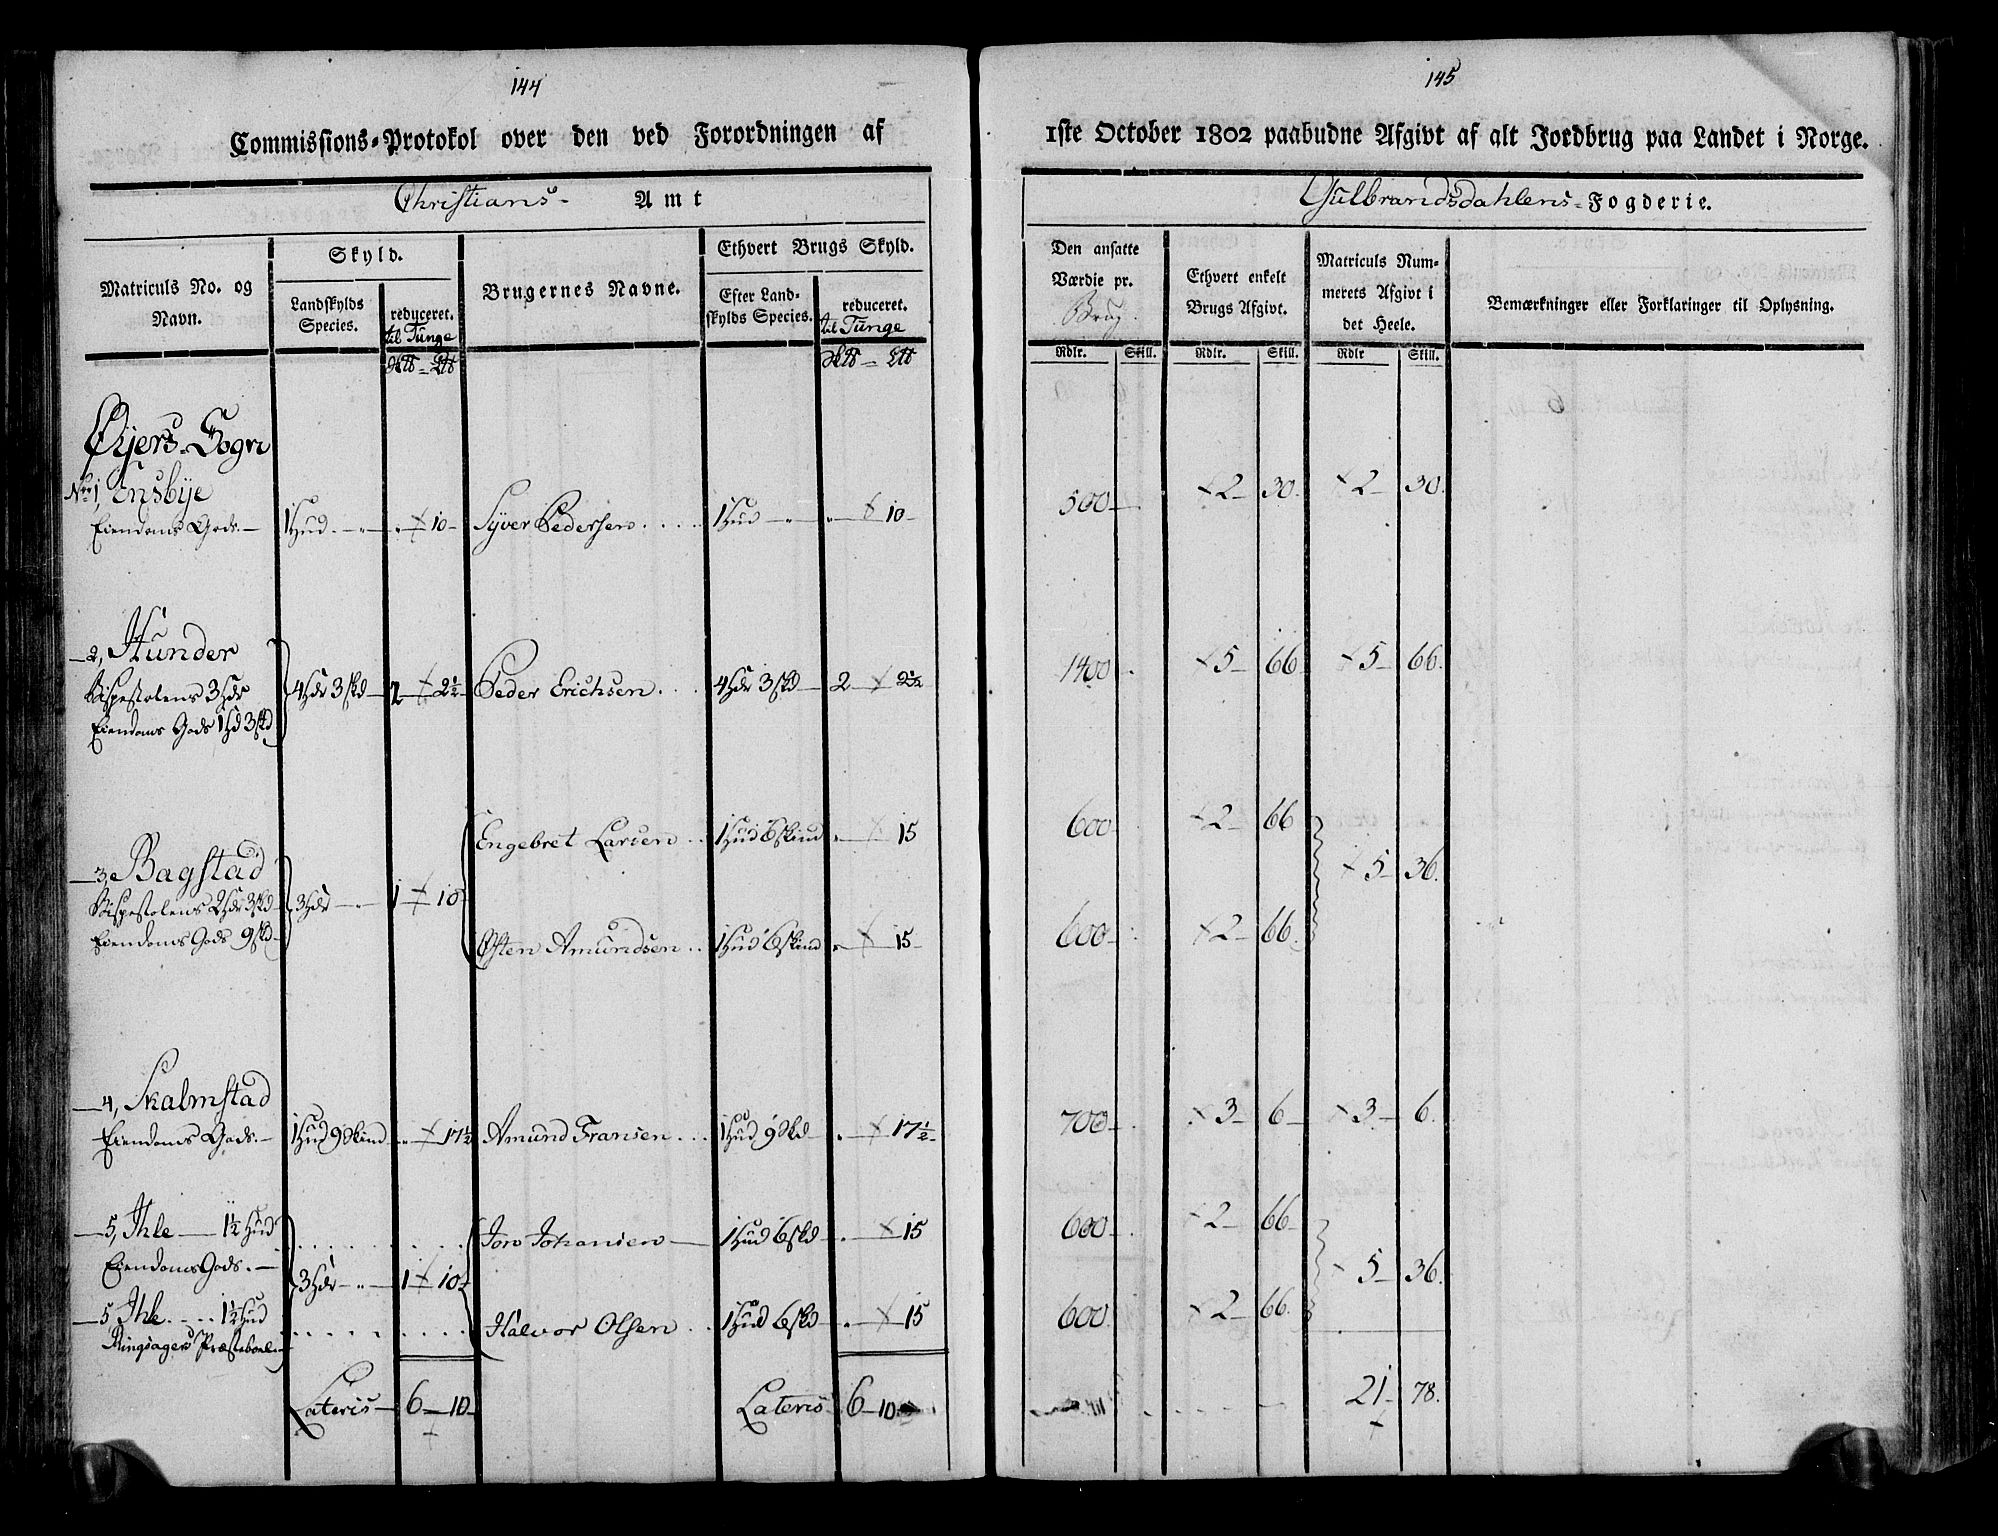 144
Commissions-Protokol over den ved Forordningen af
Christians- Amt
Matriculs No. og Navn.
Skyld.
Landskylds Species.
reduceret. til Tunge
Brugernes Navne.
Ethvert Brugs Skyld.
Efter Landskylds Species.
reduceret. til Tunge
Øijers Sogn
No 1, Ensbÿe
Eiendoms Gods — 1 Hud - „ - „ - 10 - Syver Pedersen . . . . 1 Hud - „ - „ - 10 -
2, Hunder
Bispestolens 3 Hdr 4 Hdr 3 skd - 2 - 2½ Peder Erichsen . . . 4 Hdr 3 skd - 2 - 2½
Eiendoms Gods 1 Hd 3 skd
Engebret Larsen . . 1 Hud 6 skind „ - 15
3, Bagstad
Bispestolens 2 Hdr 3 skd - 3 Hdr - „ - 1 - 10
Eiendoms Gods 9 skd - Østen Amundsen . . 1 Hud 6 skind „ - 15 -
4, Skalmstad
Eiendoms Gods. - 1 Hud 9 skind „ - 17½ Amund Fransen . . . 1 Hud 9 skd - „ - 17½ -
5, Ihle — 1½ Hud Jon Johansen — 1 Hud 6 skd „ - 15
Eiendoms Gods. -
3 Hdr - „ - 1 - 10
5 Ihle . . . 1½ Hud Halvor Olsen . . 1 Hud 6 skd „ - 15
Ringsagers Præsteboel
Lateris - 6 - 10 - Lateris 6 - 10
145
1ste October 1802 paabudne Afgivt af alt Jordbrug paa Landet i Norge.
Gulbrandsdahlens- Fogderie.
Den ansatte Værdie pr. Brug.
Ethvert enkelt Brugs Afgivt.
Matriculs Nummerets Afgivt i det Heele.
Bemærkninger eller Forklaringer til Oplysning.
Rdlr. Skill. Rdlr. Skill. Rdlr Skill.
500 - 2 - 30. 2 - 30.
1400 . 5 - 66 5 - 66.
600 - 2 - 66
5 - 36.
600 - 2 - 66.
700 - 3 - 6 - 3 - 6.
600 - 2 - 66 -
5 - 36.
600 2 - 66.
21 - 78.